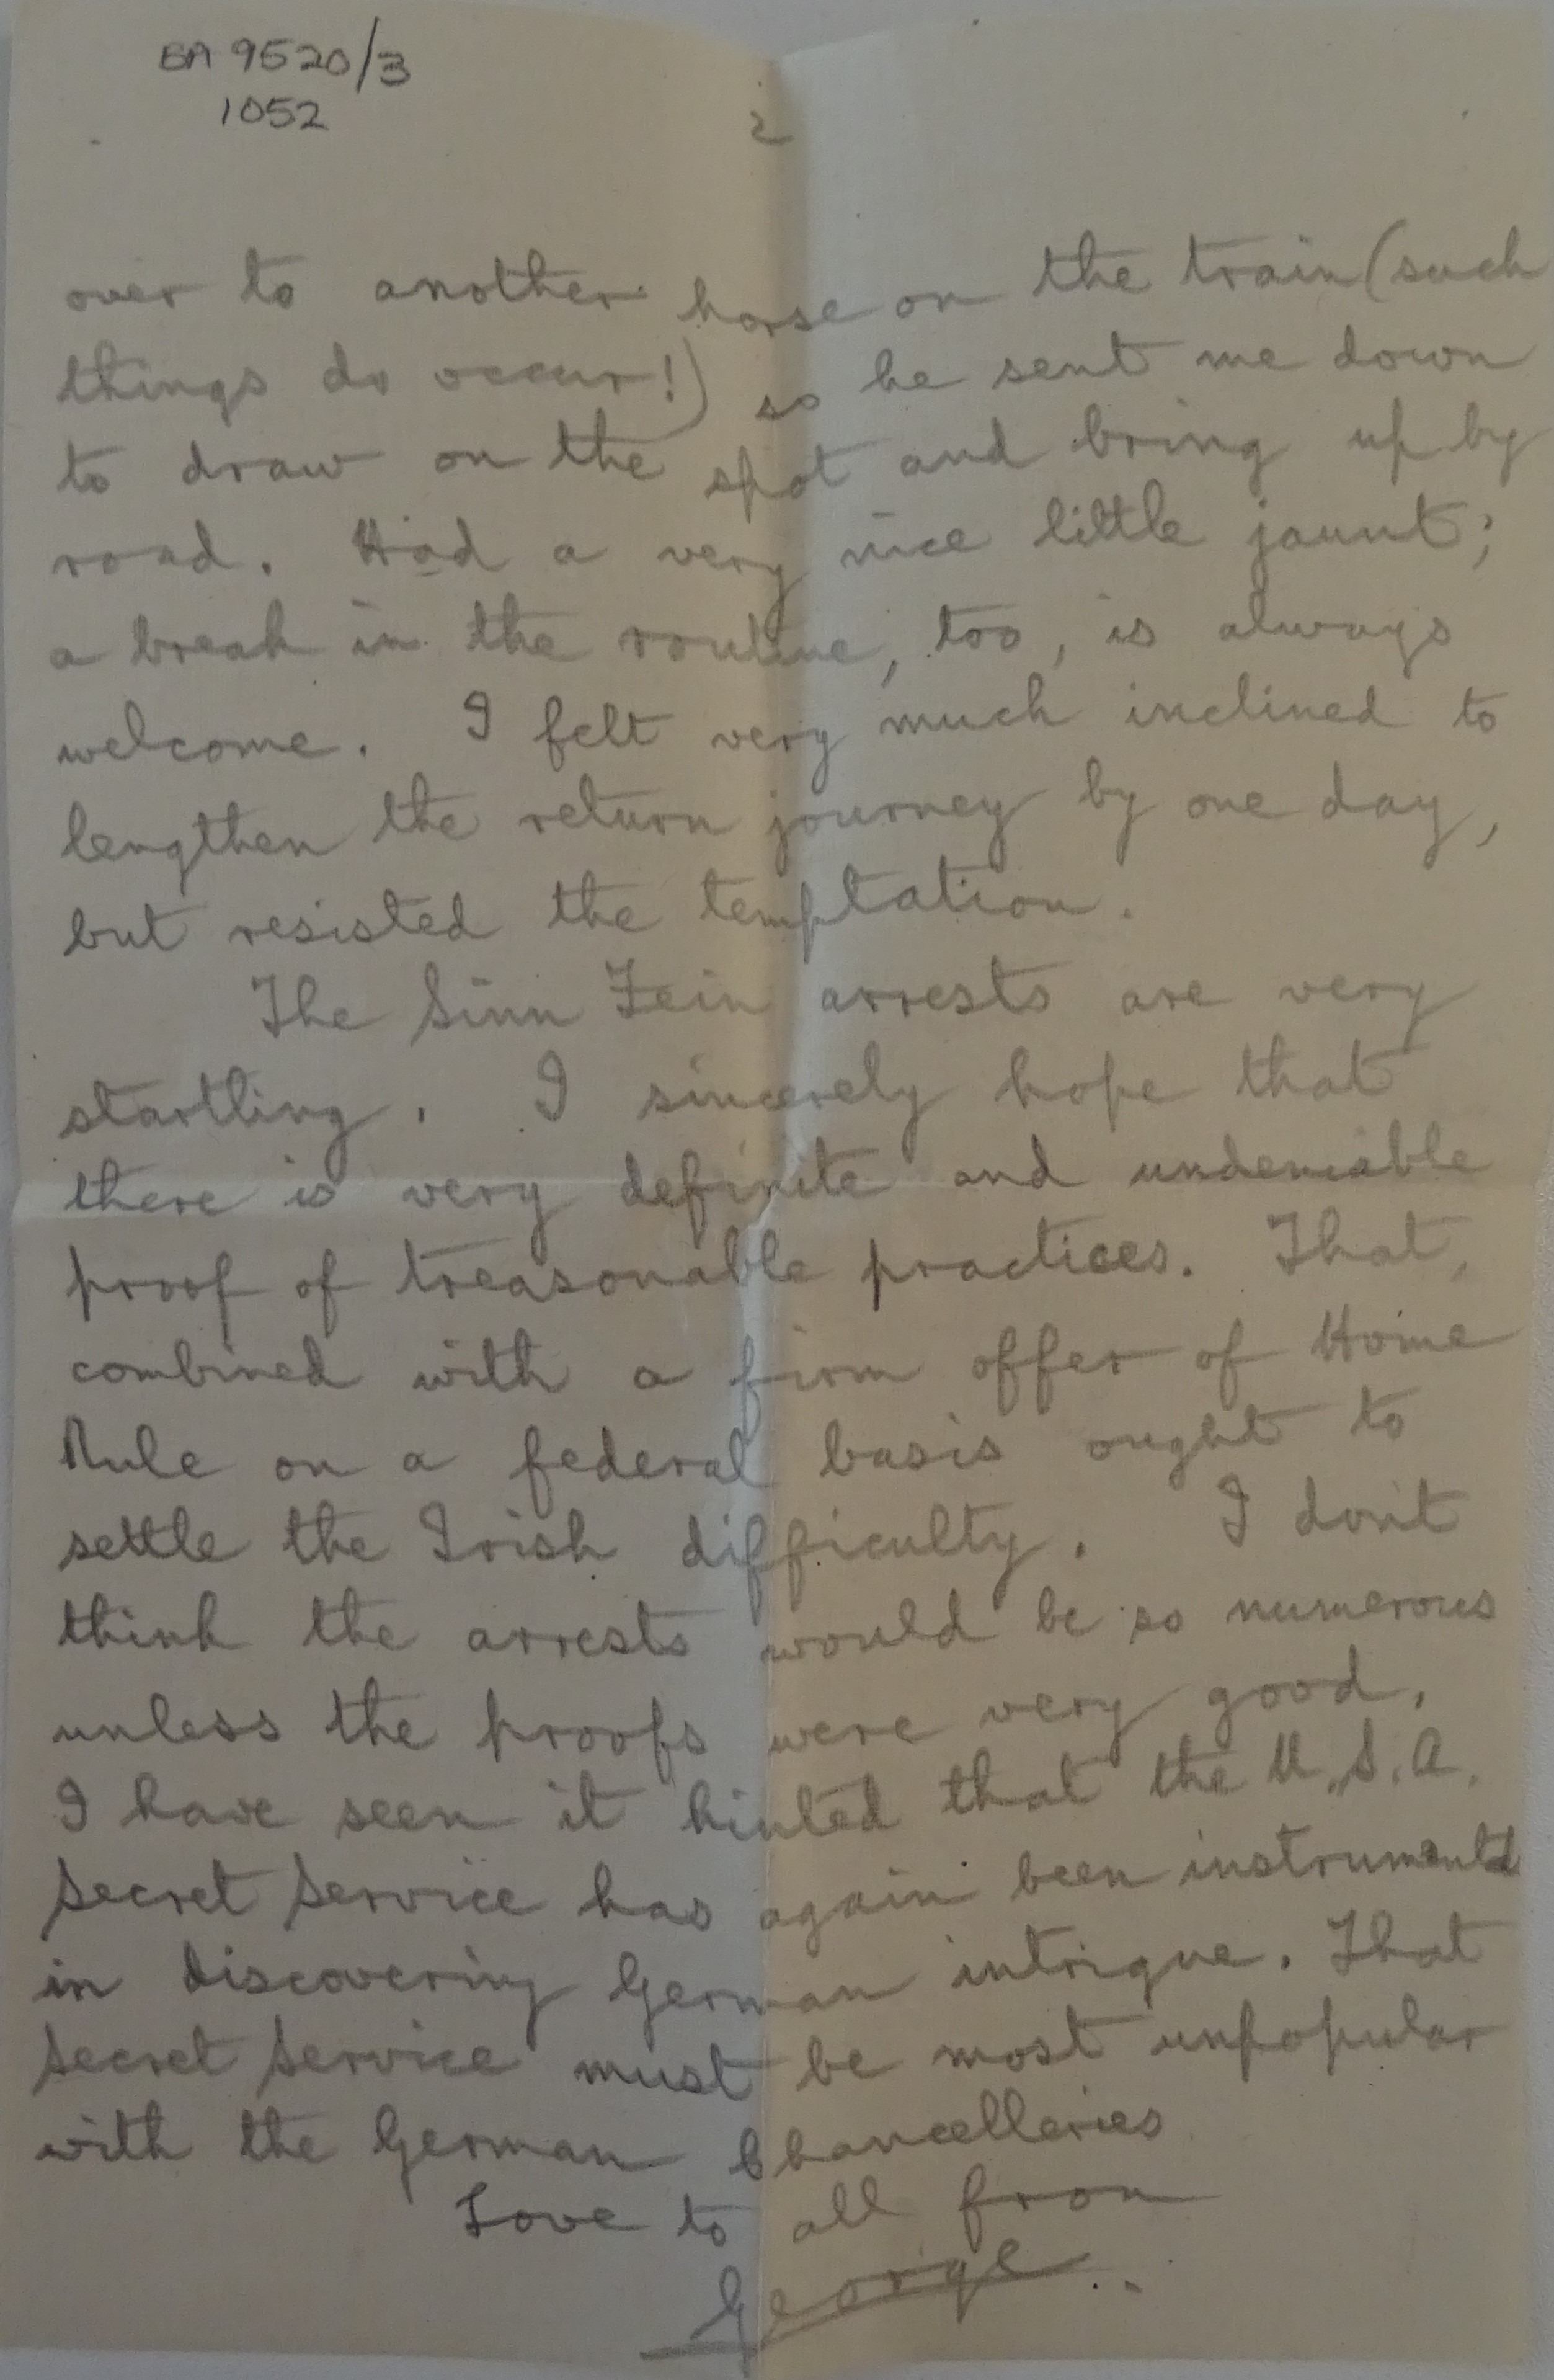 BA 9520/3
1052
2
over to another horse on the train (such
things do occur!) so he sent me down
to draw on the spot and bring up by
road. Had a very nice little jaunt;
a break in the routine, too, is always
welcome. I felt very much inclined to
lengthen the return journey by one day,
but resisted the temptation.
The Sinn Fein arrests are very
startling. I sincerely hope that
there is very definite and undeniable
proof of treasonable practices. That,
combined with a firm offer of Home
Rule on a federal basis ought to
settle the Irish difficulty. I don't
think the arrests would be so numerous
unless the proofs were very good.
I have seen it hinted that the U.S.A.
Secret Service has again been instrumental
in discovering German intrigue. That
Secret Service must be most unpopular
with the German Chancelleries
Love to all from
George.